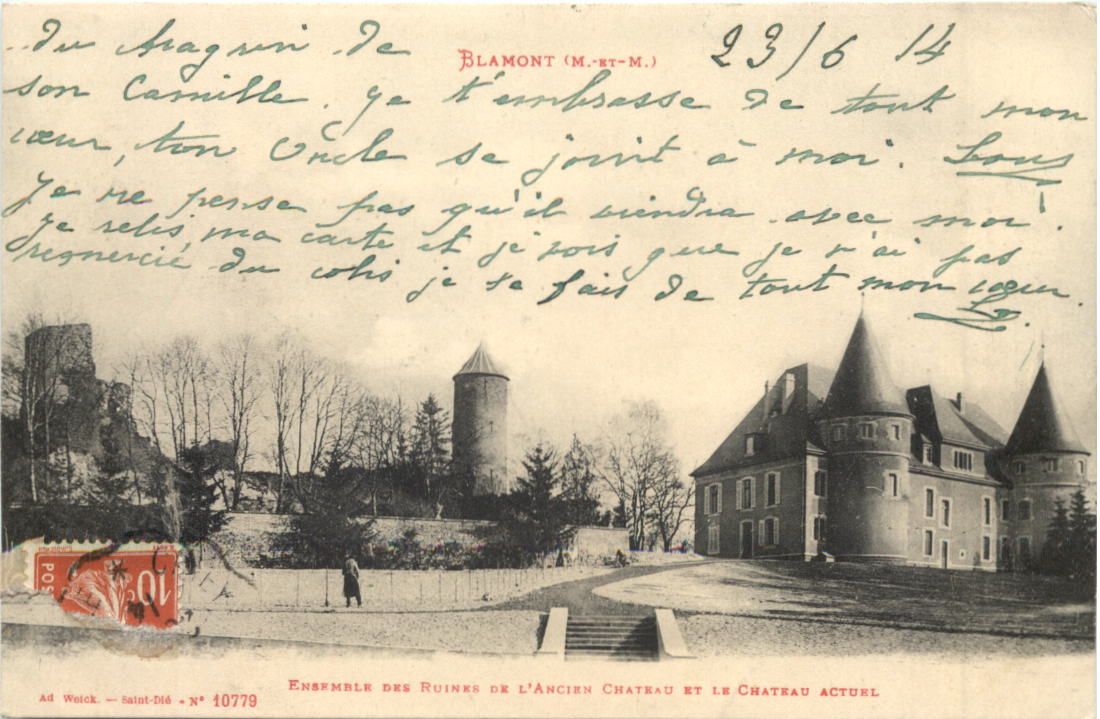 du Magasin de
BLAMONT (M.-ET-M.)
23/6 14
son Camille. Je t'embrasse de tout mon
cœur, ton Oncle se joint à moi.
Je ne pense pas qu'il viendra avec moi.
Je relis ma carte et je vois que je n'ai pas
remercié du colis je le fais de tout mon cœur.
10
POS
ENSEMBLE DES RUINES DE L'ANCIEN CHATEAU ET LE CHATEAU ACTUEL
Ad Weick. — Saint-Dié - N° 10779